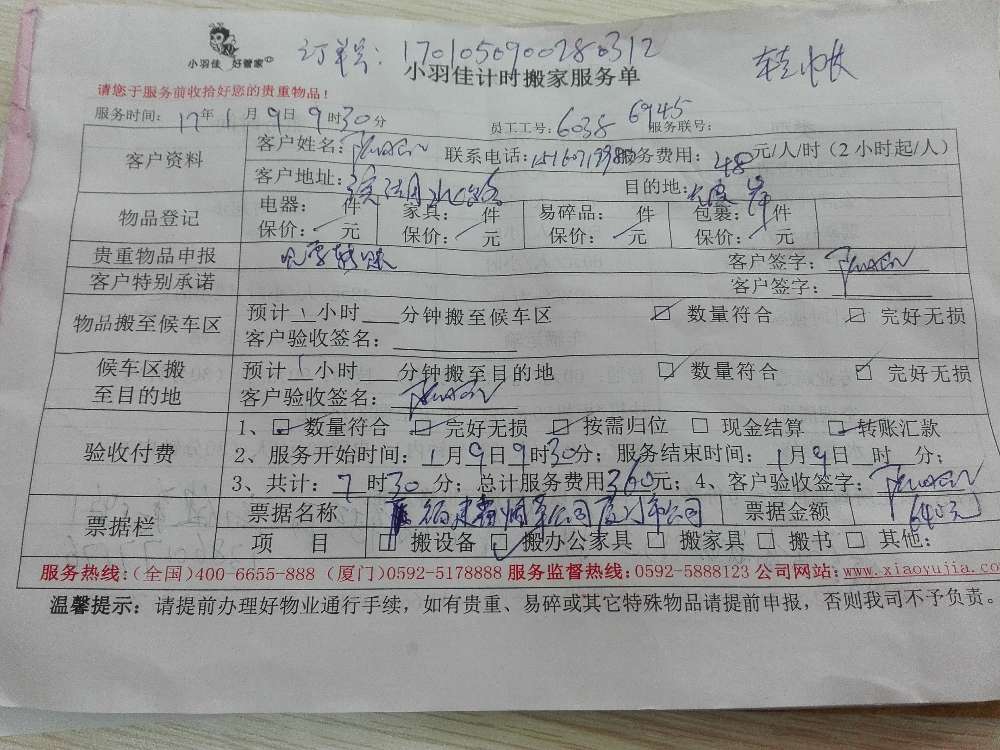 小羽佳 好管家
订单号: 1701050900280312
转帐
小羽佳计时搬家服务单
请您于服务前收拾好您的贵重物品!
服务时间: 17年1月9日9时30分 员工工号: 6038 6945 服务联号:
客户资料 客户姓名: 联系电话: 服务费用: 48元/人/时 (2小时起/人)
客户地址: 目的地:
物品登记 电器: 件 家具: 件 易碎品: 件 包裹: 件
保价: 元 保价: 元 保价: 元 保价: 元
贵重物品申报 客户签字:
客户特别承诺 客户签字:
物品搬至候车区 预计1小时 分钟搬至候车区 ☑ 数量符合 ☑ 完好无损
客户验收签名:
候车区搬至目的地 预计 小时 分钟搬至目的地 ☑ 数量符合 ☑ 完好无损
客户验收签名:
验收付费 1、☑ 数量符合 ☑ 完好无损 ☑ 按需归位 □ 现金结算 ☑ 转账汇款
2、服务开始时间: 1月9日9时30分; 服务结束时间: 1月9日 时 分;
3、共计: 7时30分; 总计服务费用360元; 4、客户验收签字:
票据栏 票据名称 票据金额 640元
项 目 □ 搬设备 ☑ 搬办公家具 □ 搬家具 □ 搬书 □ 其他:
服务热线:(全国)400-6655-888 (厦门)0592-5178888 服务监督热线:0592-5888123 公司网站:www.xiaoyujia.com
温馨提示: 请提前办理好物业通行手续, 如有贵重、易碎或其它特殊物品请提前申报, 否则我司不予负责。